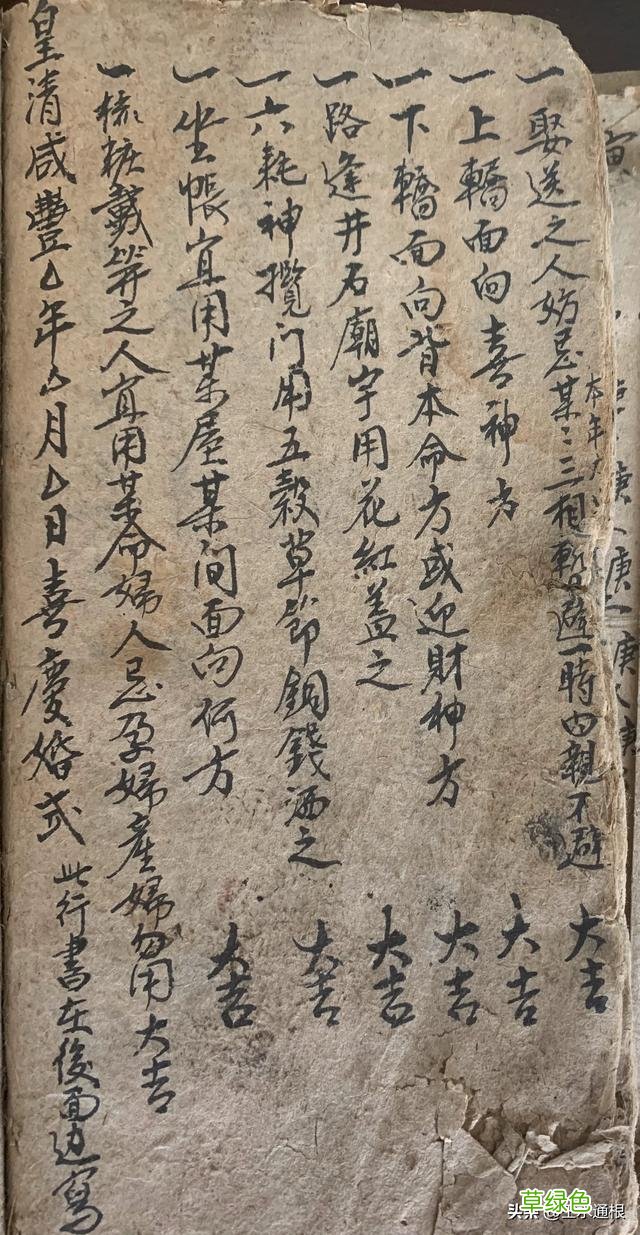 一娶送之人妨忌某〻三相暫避一時內親不避 大吉
本年
一上轎面向喜神方 大吉
一下轎面向背本命方或迎財神方 大吉
一路逢井石廟宇用花紅盖之 大吉
一六耗神攬门用五穀草節銅錢洒之 大吉
一坐帳宜用某屋某间面向何方 大吉
一梳粧戴笄之人宜用某命婦人忌孕婦產婦勿用大吉
皇清咸豐厶年厶月厶日喜慶婚式 此行書在後面边寫
庚 庚 庚
草绿色
头条 @王水通根